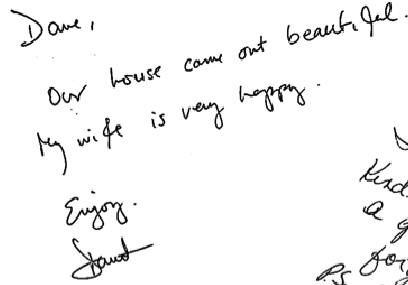 Dave,
Our house came out beautiful.
My wife is very happy.
Enjoy.
Kind
a g
P.S